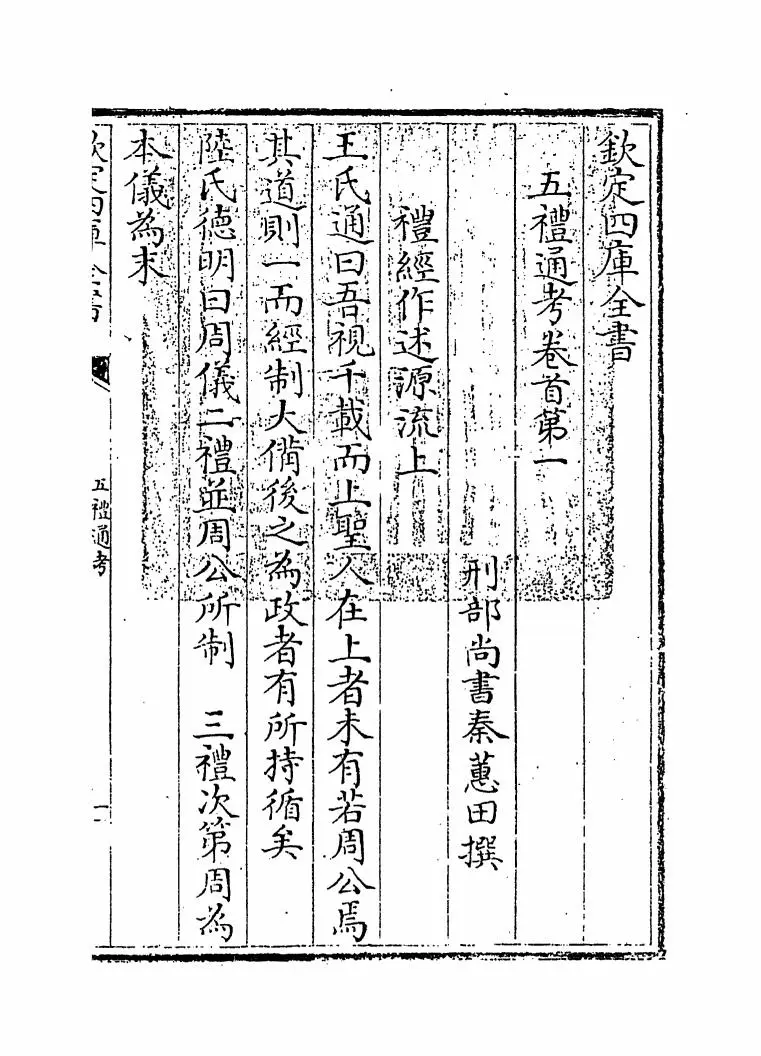 欽定四庫全書
五禮通考卷首第一
刑部尚書秦蕙田撰
禮經作述源流上
王氏通曰吾視千載而上聖人在上者未有若周公焉
其道則一而經制大備後之為政者有所持循矣
陸氏德明曰周儀二禮並周公所制　三禮次第周為
本儀為末
欽定四庫全書
五禮通考
一